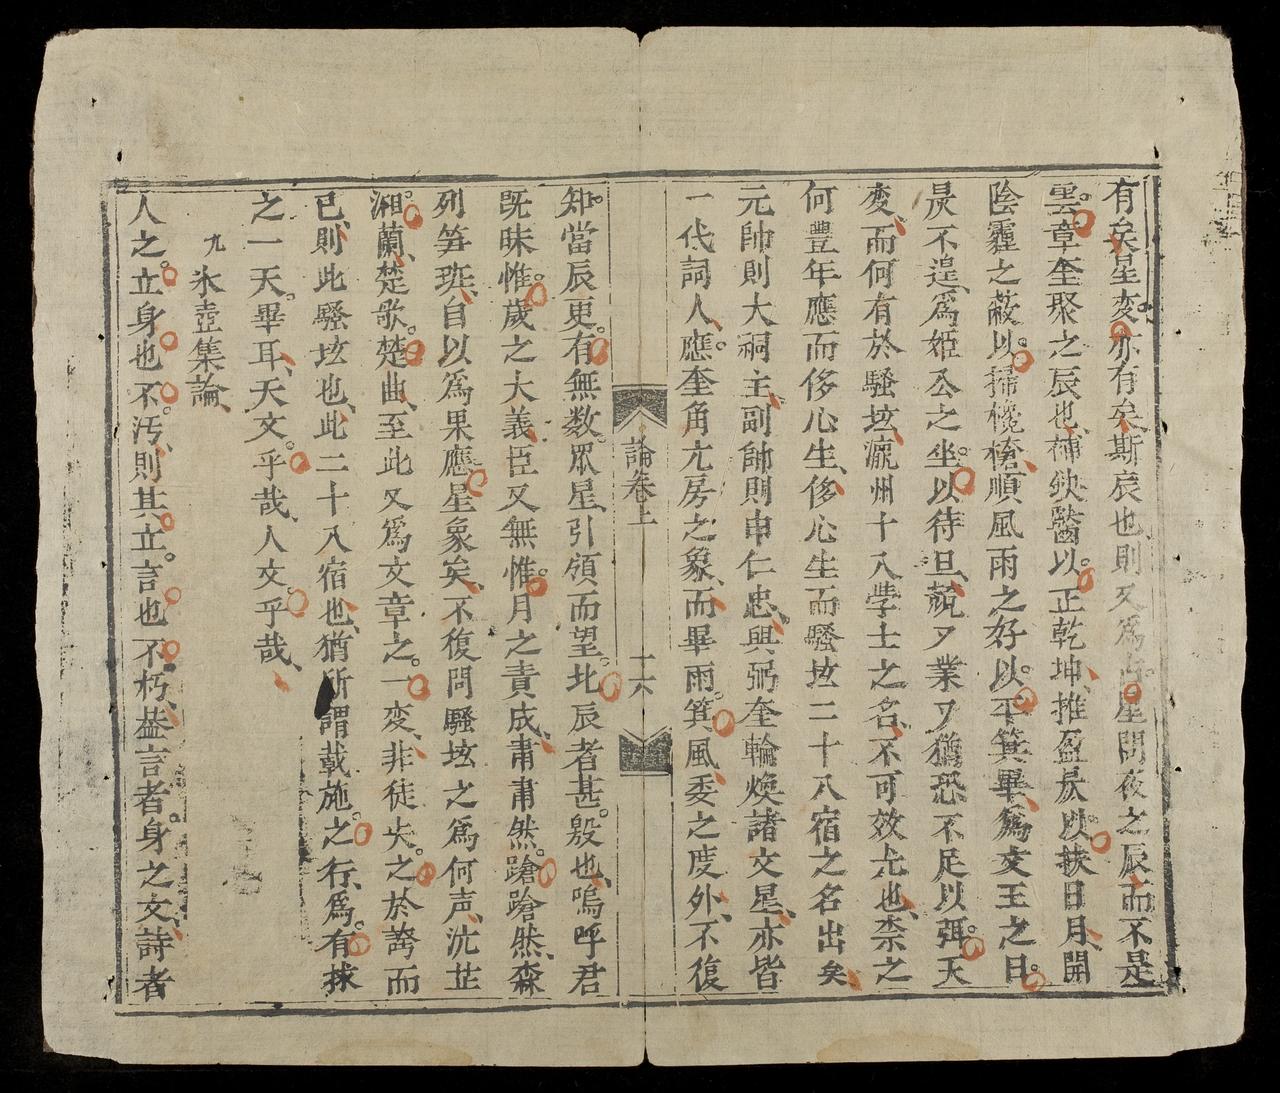 有矣星变亦有矣斯宸也則又爲占星問夜之辰而不是
雲章奎聚之辰也補缺醫以正乾坤推盈昃以扶日月開
陰霾之蔽以掃欃槍順風雨之好以平箕畢爲文王之日
昃不遑爲姬公之坐以待旦兢又業又猶恐不足以弭天
变而何有於騷坛瀛州十八學士之名不可效尤也柰之
何豐年應而侈心生侈心生而騷坛二十八宿之名出矣
元帥則大祠主副帥則申仁忠與弼奎輪煥諸文星亦皆
一代詞人應奎角亢房之象而畢雨箕風委之度外不復
論卷上
十六
知當辰更有無数眾星引領而望北辰者甚殷也嗚呼君
既昧惟歲之大義臣又無惟月之責成肅肅然蹌蹌然森
列笋班自以爲果應星象矣不復問騷坛之爲何声沅芷
湘蘭楚歌楚曲至此又爲文章之一变非徒失之於誇而
已則此騷坛也此二十八宿也猶所謂載施之行爲有捄
之一天畢耳天文乎哉人文乎哉
九
氷壺集論
人之立身也不汚則其立言也不朽蓋言者身之文詩者